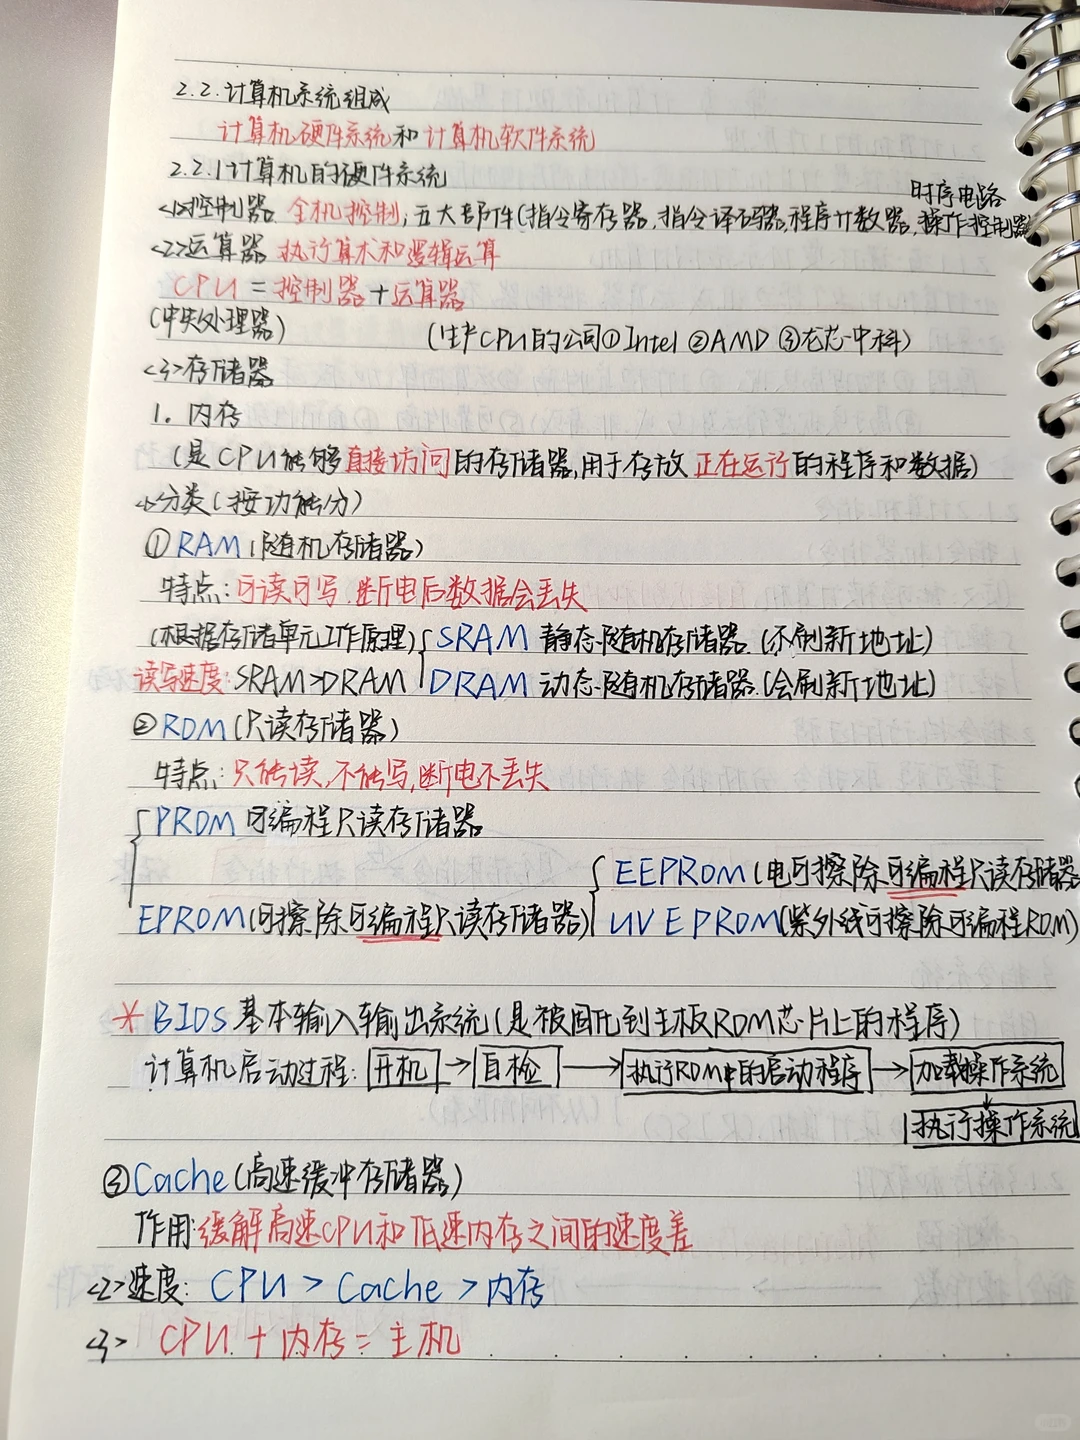 2.2.计算机系统组成
计算机硬件系统和计算机软件系统
2.2.1计算机的硬件系统
时序电路
<1>控制器 全机控制; 五大部件(指令寄存器,指令译码器,程序计数器,操作控制器
<2>运算器 执行算术和逻辑运算
CPU = 控制器 + 运算器
(中央处理器) (生产CPU的公司①Intel ②AMD ③龙芯中科)
<3>存储器
1. 内存
(是CPU能够直接访问的存储器,用于存放正在运行的程序和数据)
<1>分类(按功能分)
①RAM(随机存储器)
特点:可读可写.断电后数据会丢失
(根据存储单元工作原理){SRAM 静态随机存储器.(不刷新地址)
读写速度:SRAM>DRAM DRAM 动态随机存储器.(会刷新地址)
②ROM(只读存储器)
特点:只能读,不能写,断电不丢失
{PROM 可编程只读存储器
{EEPROM(电可擦除可编程只读存储器
EPROM(可擦除可编程只读存储器) UVEPROM(紫外线可擦除可编程ROM)
* BIOS 基本输入输出系统(是被固化到主板ROM芯片上的程序)
计算机启动过程: 开机→自检→执行ROM中的启动程序→加载操作系统
↓
执行操作系统
③Cache(高速缓冲存储器)
作用:缓解高速CPU和低速内存之间的速度差
<2>速度: CPU > Cache > 内存
<3> CPU + 内存 = 主机